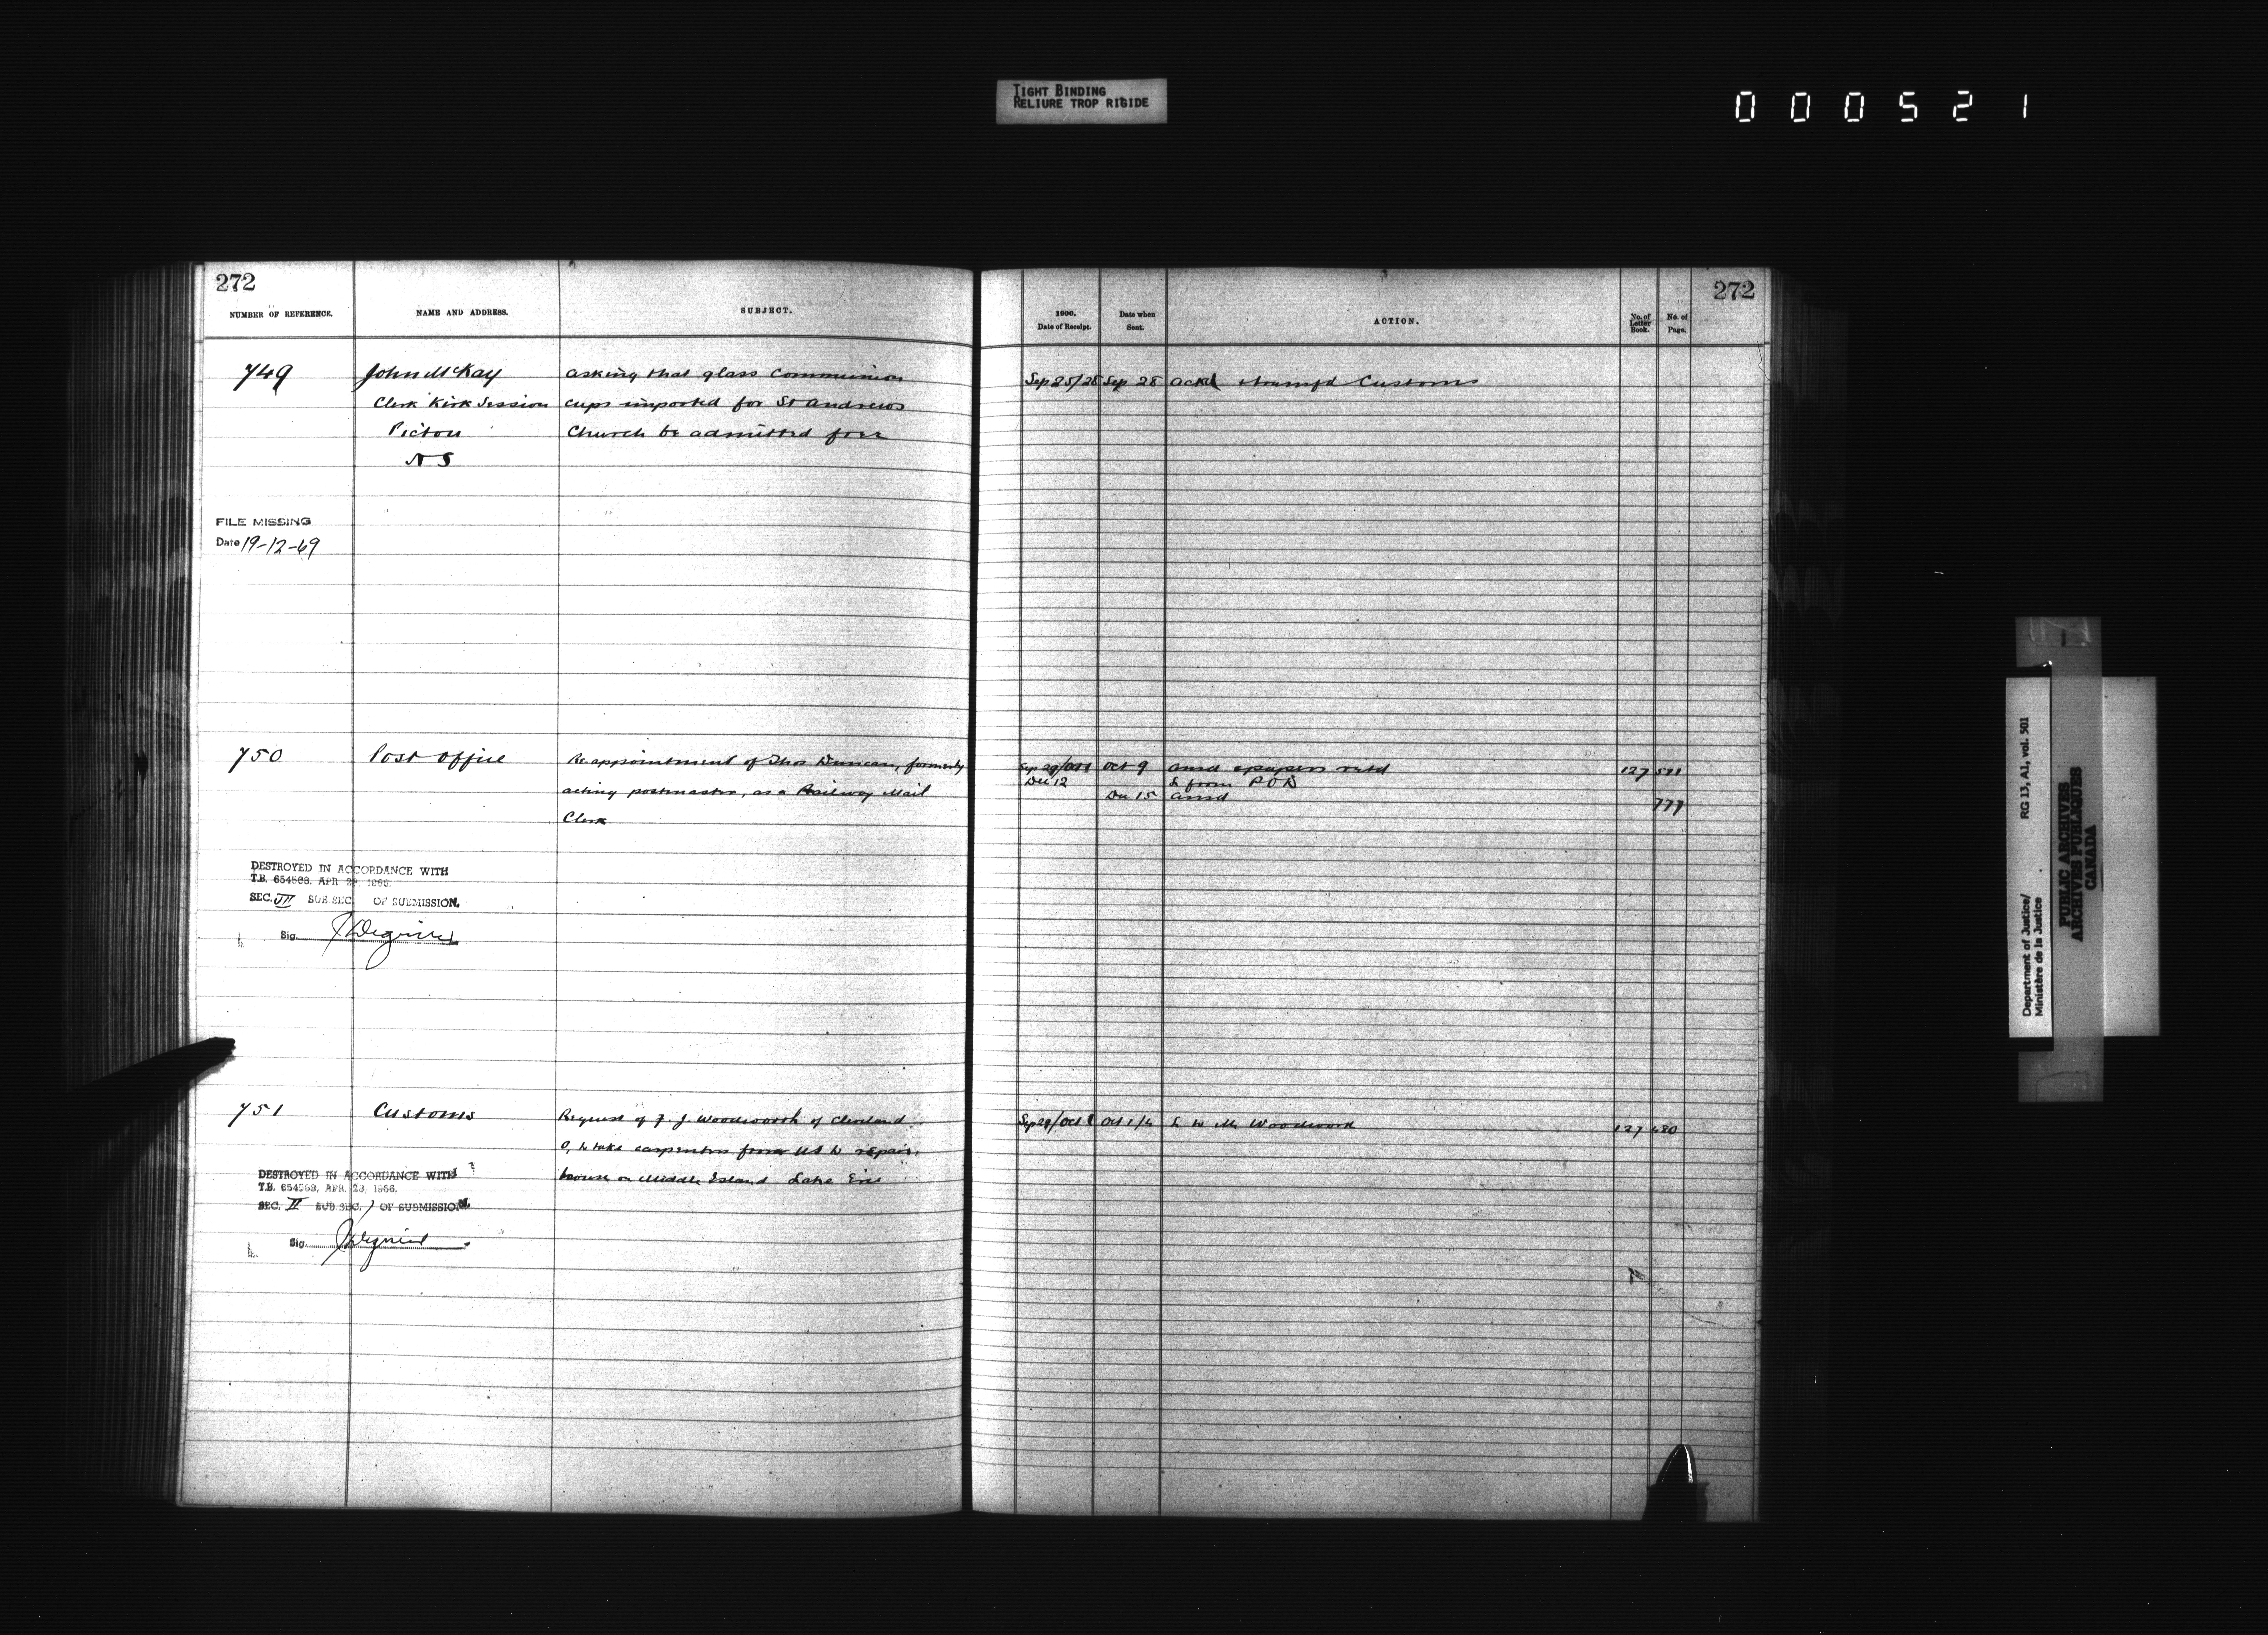 TIGHT BINDING
RELIURE TROP RIGIDE
000521
272
NUMBER OF REFERENCE.
NAME AND ADDRESS.
SUBJECT.
749
John McKay
Clerk Kirk Session
Pictou
N S
asking that glass communion
cups imported for St Andrews
Church be admitted free
FILE MISSING
Date 19-12-69
750
Post Office
Re appointment of Thos Duncan, formerly
acting postmaster, as a Railway Mail
Clerk
DESTROYED IN ACCORDANCE WITH
T.B. 654568, APR 29, 1966.
SEC. VII SUB.SEC. OF SUBMISSION.
Sig.
751
Customs
Request of F. J. Woodworth of Cleveland
O, to take carpenters from US to repair
house on Middle Island Lake Erie
DESTROYED IN ACCORDANCE WITH
T.B. 654568, APR. 29, 1966.
SEC. II SUB SEC. 1 OF SUBMISSION.
Sig.
272
1900.
Date of Receipt.
Date when
Sent.
ACTION.
No. of
Letter
Book.
No. of
Page.
Sep 25/28 Sep 28 ackd & transfd Customs
Sep 29/Oct 1 Oct 9 ansd & papers retd 127 511
Dec 12 L from P O D
Dec 15 ansd 777
Sep 29/Oct 1 Oct 1/4 L to Mr Woodword 127 480
Department of Justice/
Ministère de la Justice
RG 13, A1, vol. 501
PUBLIC ARCHIVES
ARCHIVES PUBLIQUES
CANADA